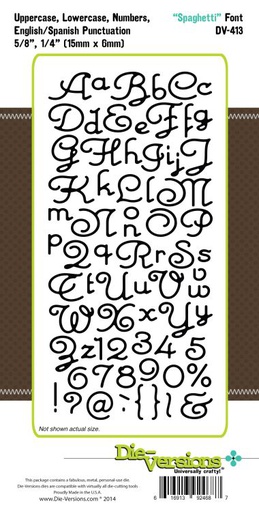 Uppercase, Lowercase, Numbers, “Spaghetti” Font
English/Spanish Punctuation DV-413
5/8”, 1/4” (15mm x 6mm)
AaBbCc
DdEeFfg
GHhIijJ
KkLlM
mNnOP
pQqRrSs
TtUuVv
WXxYy
Zz12345
67890%
!?@~:{}&
Not shown actual size.
Die-Versions
Universally crafty!
This package contains a fabulous, metal, personal-use die.
Die-Versions dies are compatible with virtually all die-cutting tools.
Proudly Made in the U.S.A.
www.Die-Versions.com © 2014
8 16913 92468 7